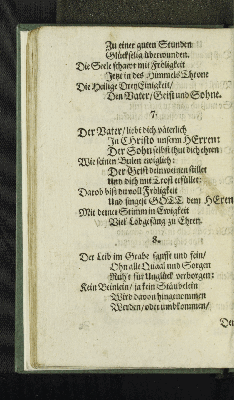 Zu einer guten Stunden
Glückselig überwunden.
Die Seele schawt mit Fröligkeit
Jetzt in des Himmels Throne
Die Heilige DreyEinigkeit/
Den Vater/ Geist und Sohne.
7.
Der Vater/ liebt dich väterlich
In Christo unserm HErren:
Der Sohn selbst thut dich ehren
Wie seinen Bulen ewiglich:
Der Geist dein weinen stillet
Und dich mit Trost erfüllet:
Darob bistu voll Fröligkeit
Und singest GOTT dem HErren
Mit deiner Stimm in Ewigkeit
Viel Lobgesäng zu Ehren.
8.
Der Leib im Grabe sanfft und fein/
Ohn alle Quaal und Sorgen
Ruht für Unglück verborgen:
Kein Beinlein/ ja kein Stäubelein
Wird davon hingenommen
Werden/ oder umbkommen/